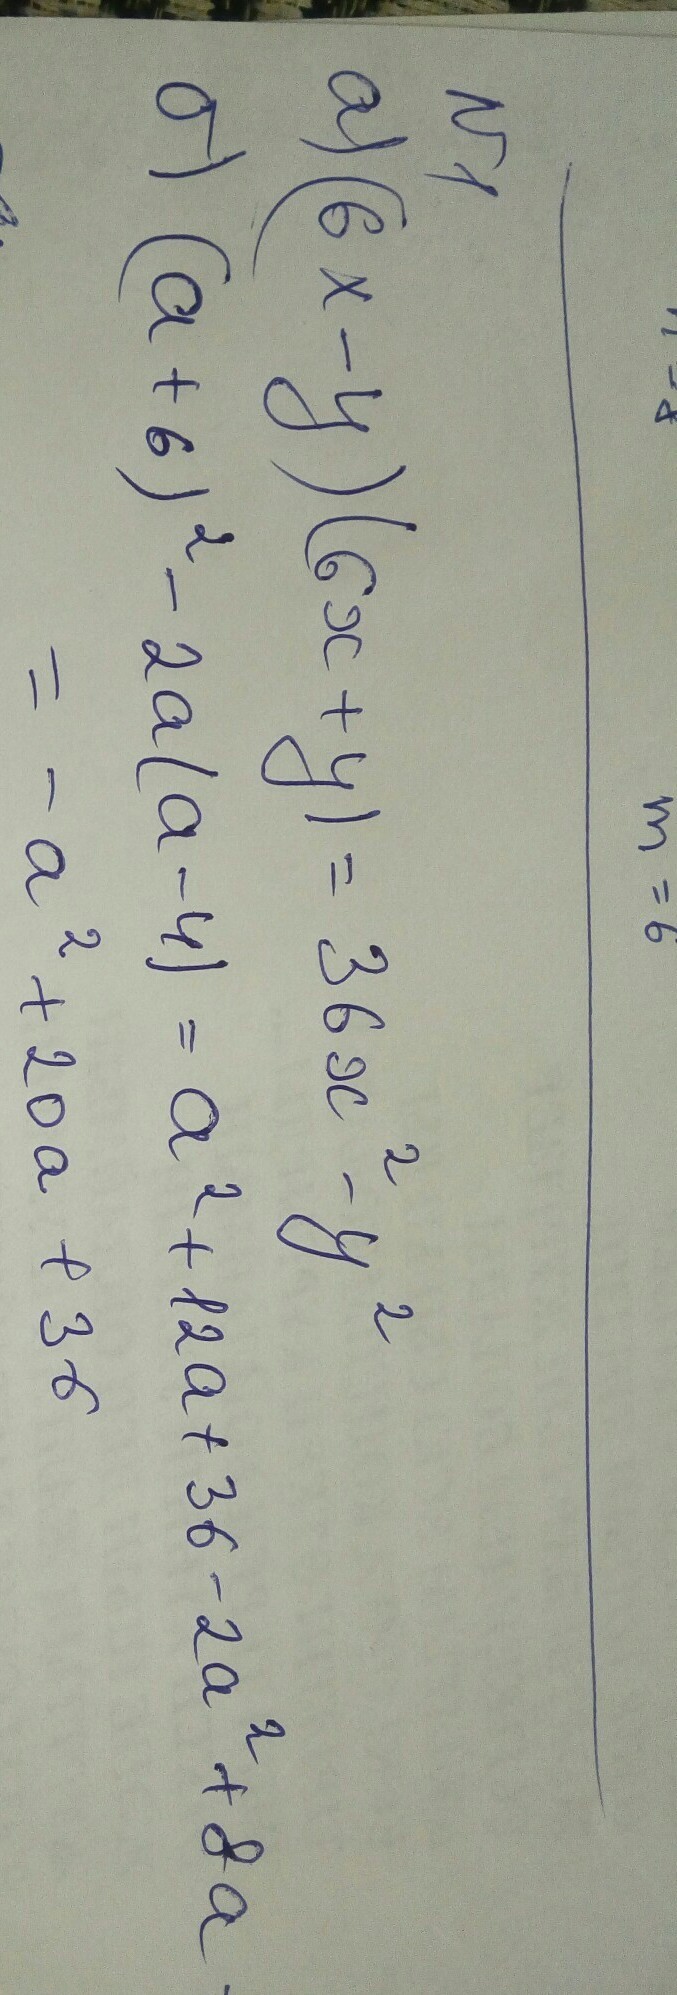 m = 6
N1
а) (6x - y)(6x + y) = 36x² - y²
б) (a + 6)² - 2a(a - 4) = a² + 12a + 36 - 2a² + 8a
= - a² + 20a + 36